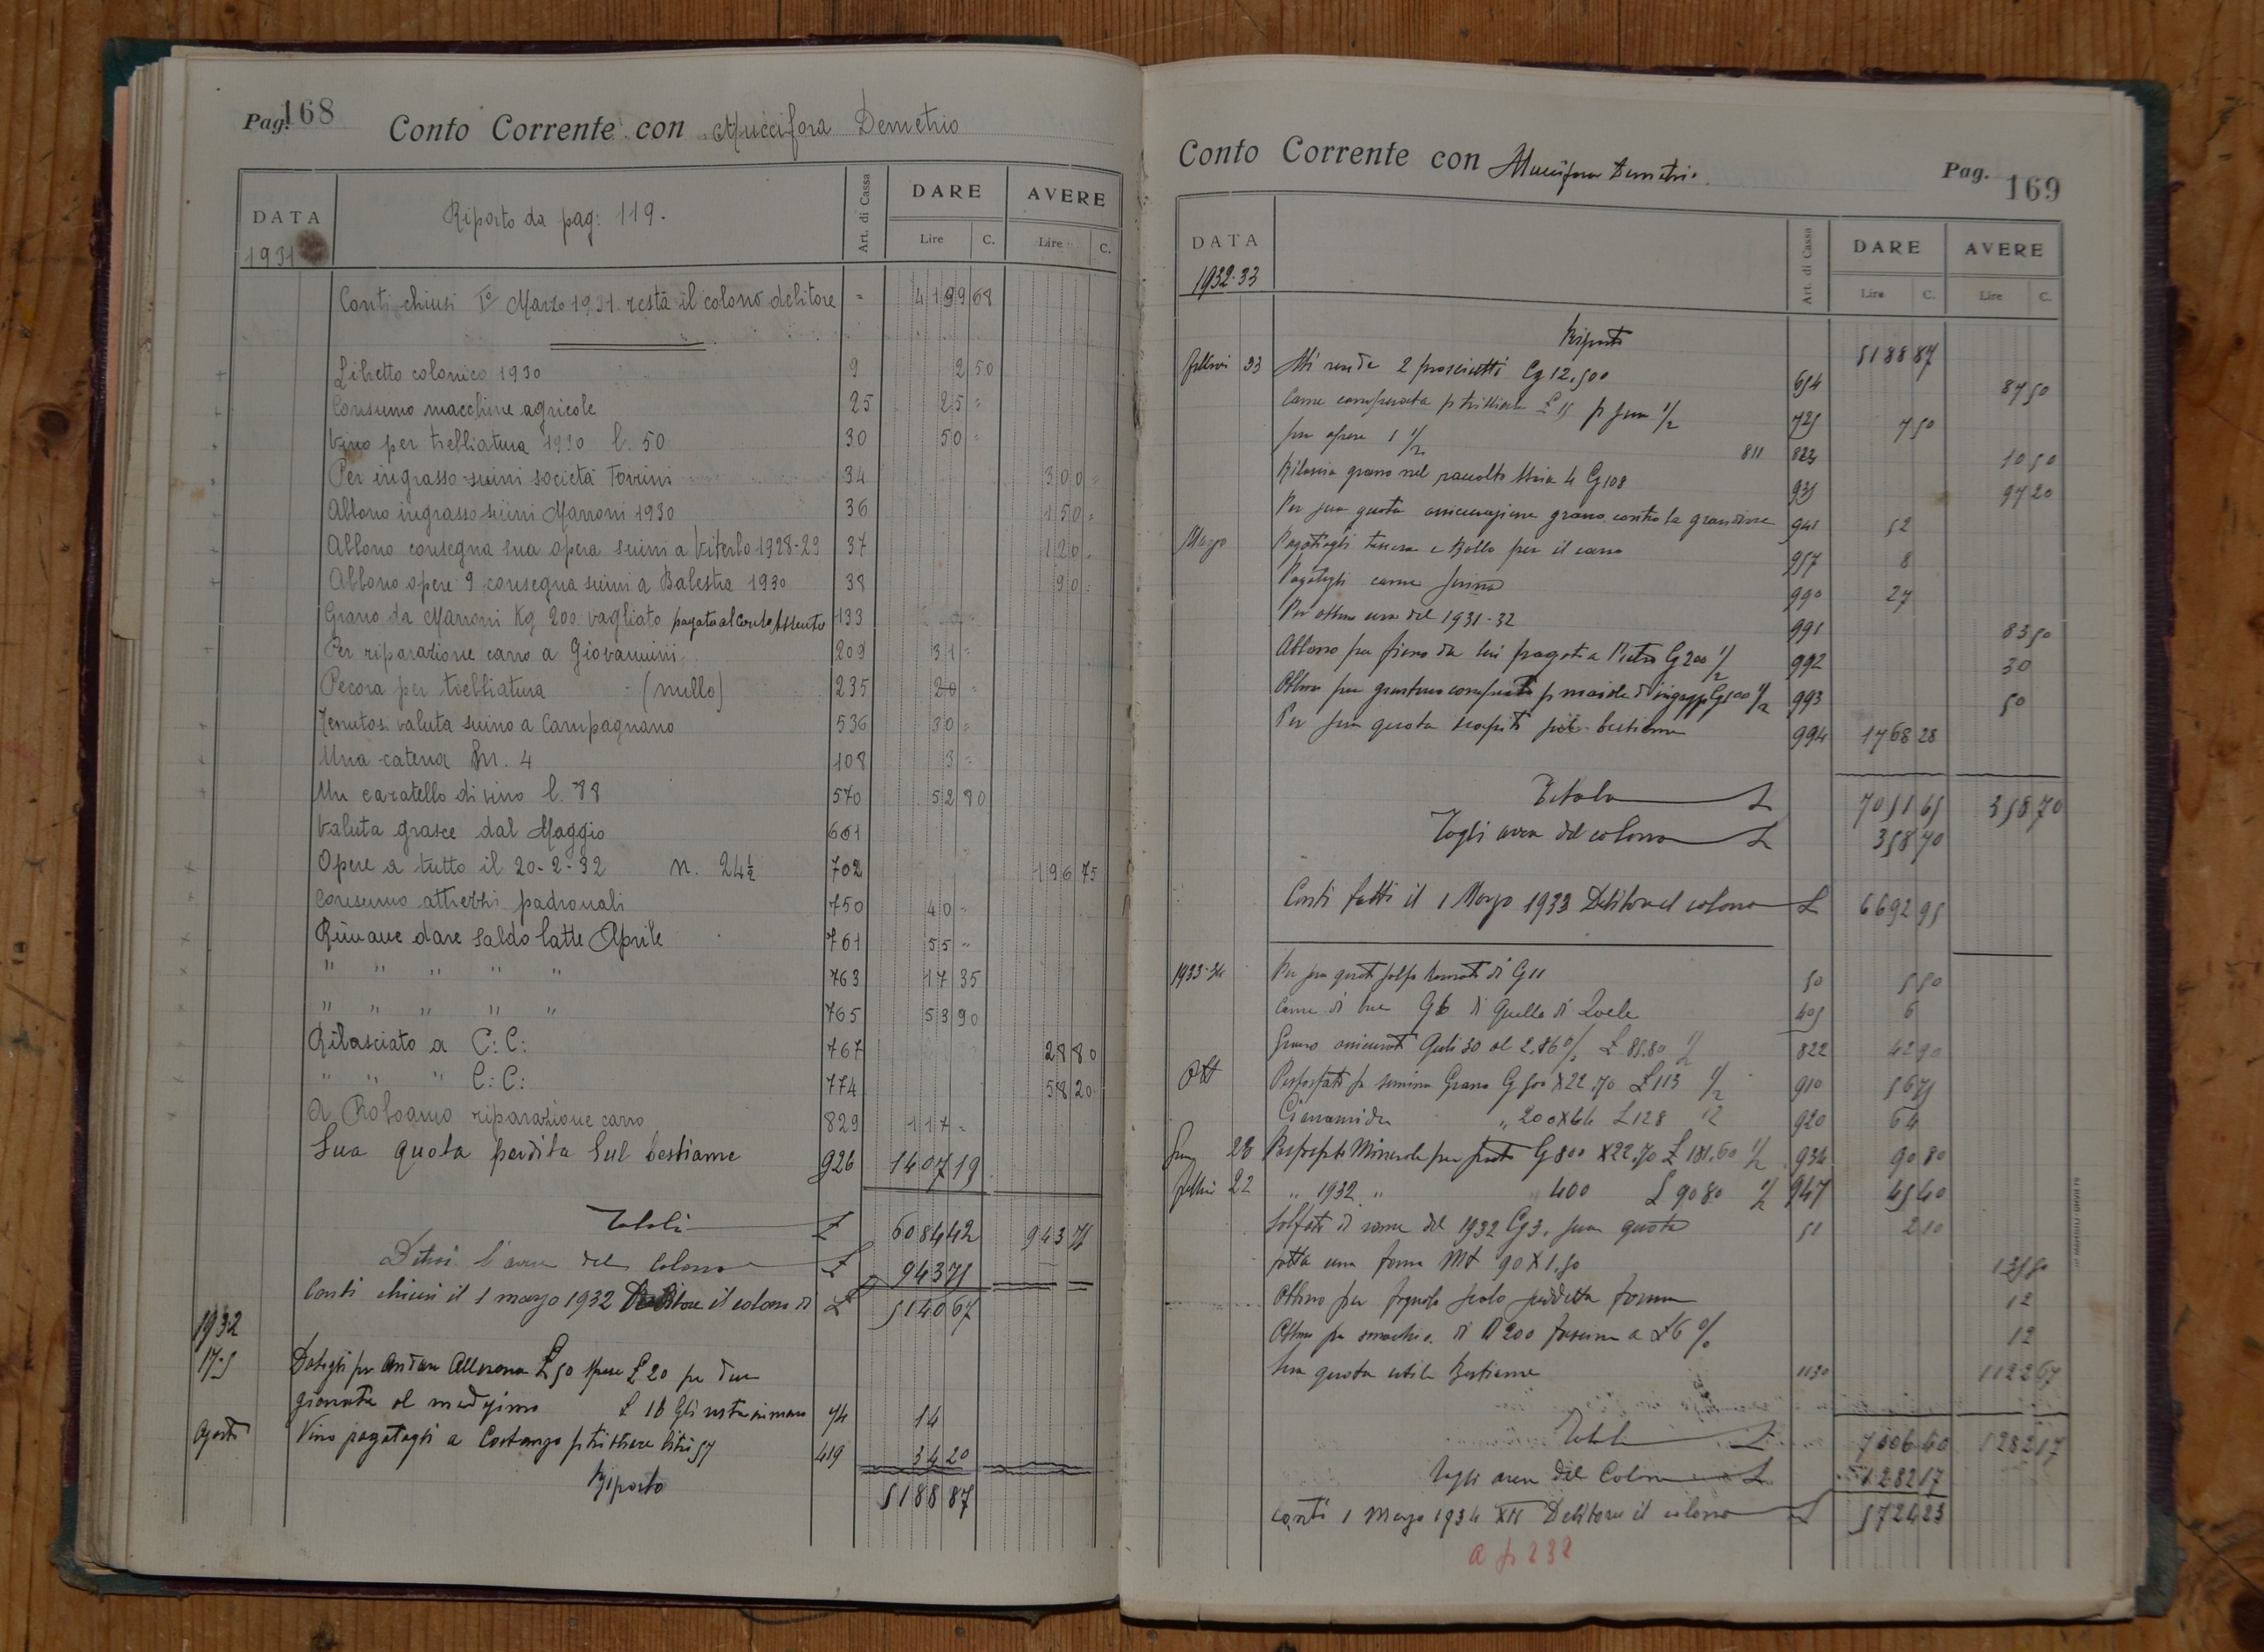 Pag. 168
Conto Corrente con Muccifora Demetrio
DATA Riporto da pag: 119. Art. di Cassa DARE AVERE
1931 Lire C. Lire C.
Conti chiusi 1º Marzo 1931 resta il colono debitore = 4199 68
Libretto colonico 1930 9 2 50
Consumo macchine agricole 25 25 =
Vino per trebbiatura 1930 l. 50 30 50 =
Per ingrasso suini società Torrini 34 300 =
Abbono ingrasso suini Marroni 1930 36 150 =
Abbono consegna sua opera suini a Viterbo 1928-29 37 120 =
Abbono opere 9 consegna suini a Balestra 1930 38 90 =
Grano da Marroni Kg 200 vagliato pagato al Conto 133
Per riparazione carro a Giovannini 209 31 =
Pecora per trebbiatura (nullo) 235 20 =
Tenutos. valuta suino a Campagnano 536 30 =
Una catena Nr. 4 108 3 =
Un caratello di vino l. 88 570 52 80
Valuta grasce dal Maggio 601
Opere a tutto il 20-2-32 n. 24½ 702 196 75
Consumo attrezzi padronali 750 40 =
Rimane dare saldo latte Aprile 761 55 "
" " " " " 763 17 35
" " " " " 765 53 90
Rilasciato a C: C: 767 28 80
" " " C: C: 774 58 20
A Roboamo riparazione carro 829 117 =
Sua quota perdita sul bestiame 926 1407 19
Totali £ 6084 42 943 75
Detrai l'avere del colono £ 943 75
Conti chiusi il 1 marzo 1932 Debitore il colono di £ 5140 67
1932
17-5 Datogli per andare Allerona £ 50 spese £ 20 per due
giornate al medesimo £ 16 gli resta in mano 74 14
Agosto Vino pagatogli a Costanzo p tribbiare litri 57 419 34 20
Riporto 5188 87
Conto Corrente con Muccifora Demetrio Pag. 169
DATA Art. di Cassa DARE AVERE
1932-33 Lire C. Lire C.
Riporto 5188 87
33 Mi rende 2 prosciutti Cg 12,500 654 87 50
Carne comperata p tribbiare £ 15 p sua 1/2 725 7 50
per opere 1 1/2 811 823 10 50
Rilascia grano nel raccolto 4 Cg 108 935 97 20
Per sua quota assicurazione grano contro la grandine 941 52
Marzo Pagatogli tessera e Bollo per il carro 957 8
Pagatogli carne suina 990 27
Per del 1931-32 991 83 50
Abbono per fieno da lui pagato a Pietro Cg 200 1/2 992 30
993 50
Per sua quota bestiame 994 1768 28
Totale £ 7051 65 358 70
Togli avere del colono £ 358 70
Conti fatti il 1 Marzo 1933 Debitore il colono £ 6692 95
1933-34 Per sua quota di Cg 11 50 5 50
Carne di bue Cg 6 di quella di 405 6
Grano assicurato Quli 30 al 2,86 % £ 85.80 1/2 822 42 90
Ott Perfosfato p semina Grano Cg 500 X 22.70 £ 113 1/2 910 56 75
Cianamide " 200 X 64 £ 128 1/2 920 64
28 Perfosfato Minerale per prato Cg 800 X 22.70 £ 181.60 1/2 934 90 80
22 " 1932 " 400 £ 90 80 1/2 947 45 40
Solfato di rame del 1932 Cg 3. sua quota 51 2 10
fatta una forma Mt 90 X 1,50 135 50
Abbono per scolo suddetta forma 12
di N 200 fascine a £ 6 % 12
Sua quota utile Bestiame 1130 1122 67
Totale £ 7006 40 1282 17
Togli avere del Colono £ 1282 17
Conti 1 Marzo 1934 XII Debitore il colono £ 5724 23
a p 232